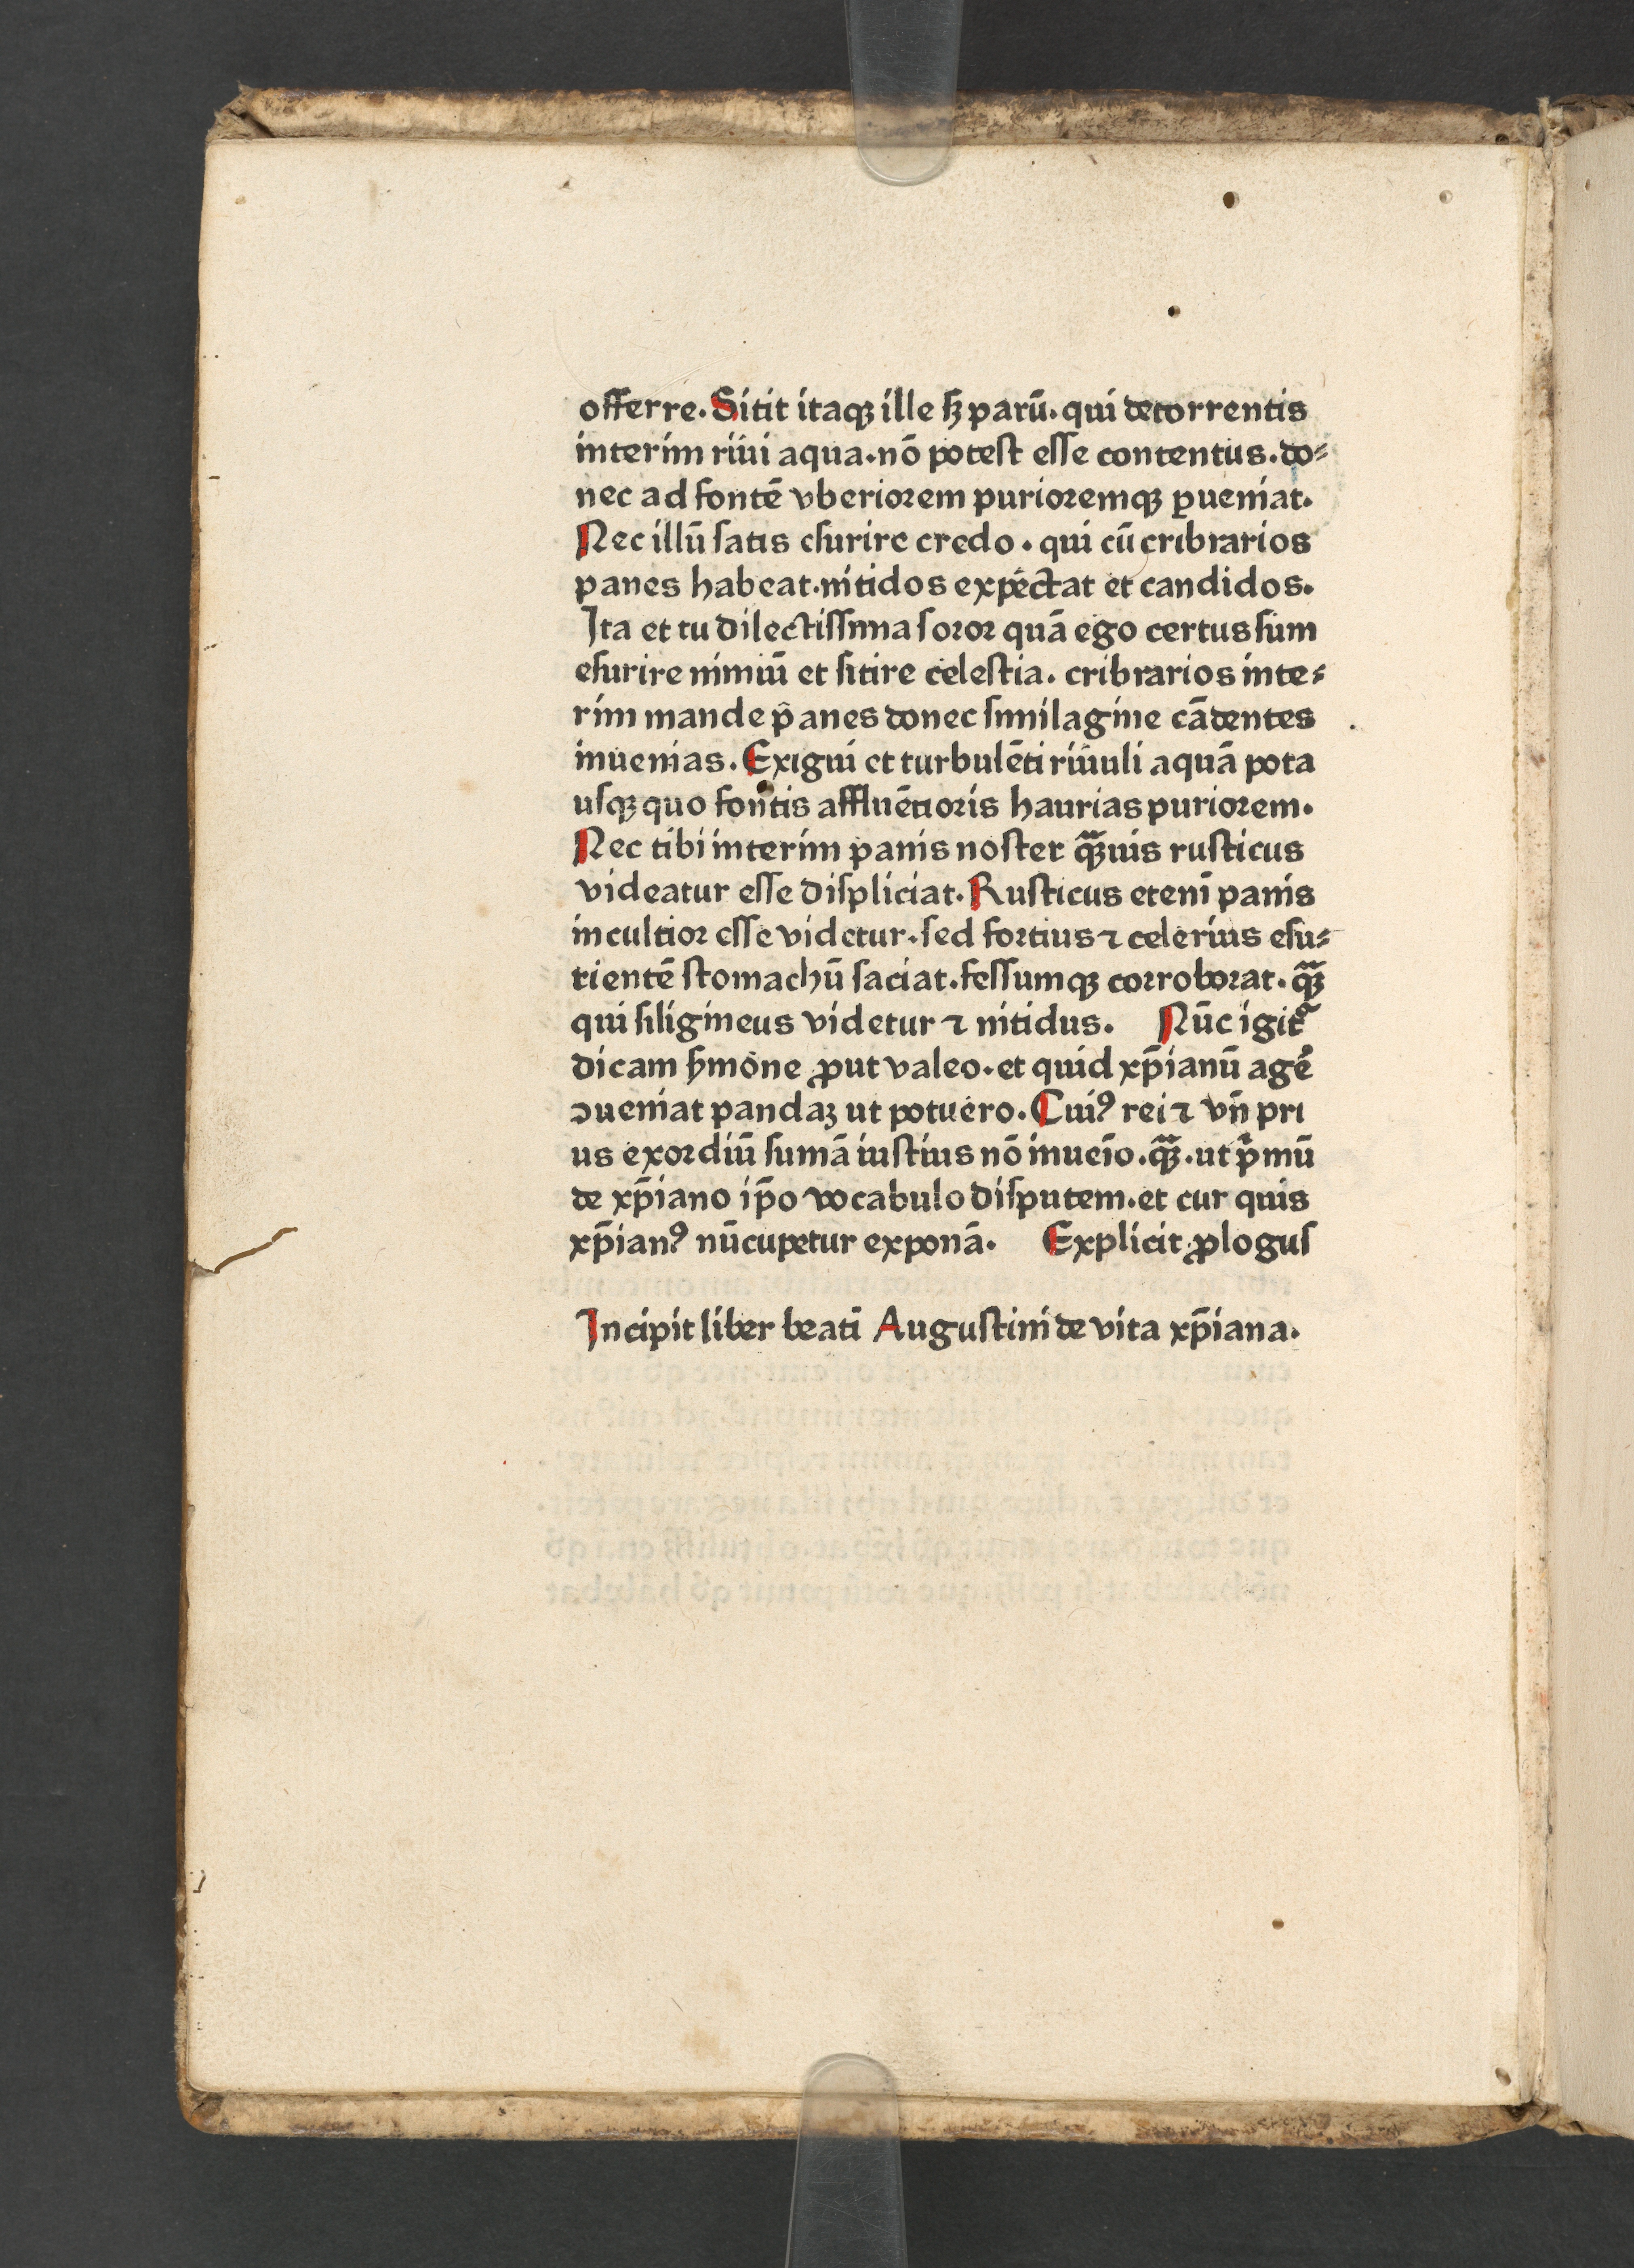 offerre. Sitit itaqꝫ ille ſꝫ parū. qui decorrentis
interim riui aqua. nō poteſt eſſe contentus. do⸗
nec ad fontē vberiorem purioremqꝫ ꝑueniat.
Nec illū ſatis eſurire credo. qui cū cribrarios
panes habeat. nitidos expectat et candidos.
Ita et tu dilectiſſima ſoror quā ego certus ſum
eſurire nimiū et ſitire celeſtia. cribrarios inte⸗
rim mande panes donec ſimilagine cādentes
inuenias. Exigui et turbulēti riuuli aquā pota
uſqꝫ quo fontis affluētioris haurias puriorem.
Nec tibi interim panis noſter qꝫ̄uis ruſticus
videatur eſſe diſpliciat. Ruſticus etenī panis
incultior eſſe videtur. ſed fortius ⁊ celerius eſu⸗
rientē ſtomachū ſaciat. feſſumqꝫ corroborat. qꝫ̄
qui ſiligineus videtur ⁊ nitidus. Nūc igit᷑
dicam ẜmone ꝓut valeo. et quid xp̄ianū agē
ↄueniat pandaꝫ ut potuero. Cuiꝰ rei ⁊ vn̄ pri
us exordiū ſumā iuſtius nō inueīo. qꝫ̄. ut pͥmū
de xp̄iano ip̄o vocabulo diſputem. et cur quis
xp̄ianꝰ nūcupetur exponā. Explicit ꝓlogus
Incipit liber beati Auguſtini de vita xp̄iana.